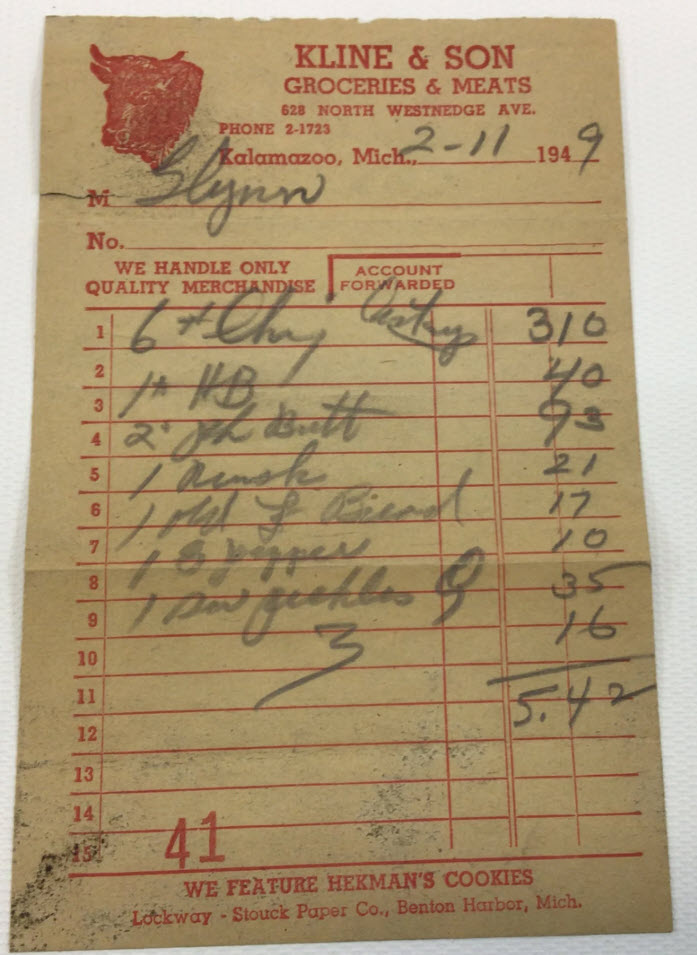 KLINE & SON
GROCERIES & MEATS
628 NORTH WESTNEDGE AVE.
PHONE 2-1723
Kalamazoo, Mich., 2-11 1949
M Glynn
No.
WE HANDLE ONLY
QUALITY MERCHANDISE
ACCOUNT
FORWARDED
1 6 # 310
2 1 # HB 40
3 93
4 2 Butt
5 1 21
6 1 old Bread 17
7 1 pepper 10
8 1 pickles 35
9 16
10
11 5.42
12
13
14
15
41
WE FEATURE HEKMAN'S COOKIES
Lockway - Stouck Paper Co., Benton Harbor, Mich.